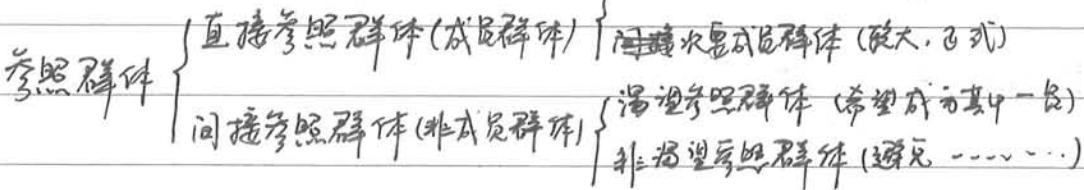 参照群体
直接参照群体(成员群体)
次要成员群体(较大,正式)
间接参照群体(非成员群体)
渴望参照群体(希望成为其中一员)
非渴望参照群体(避免 ········)